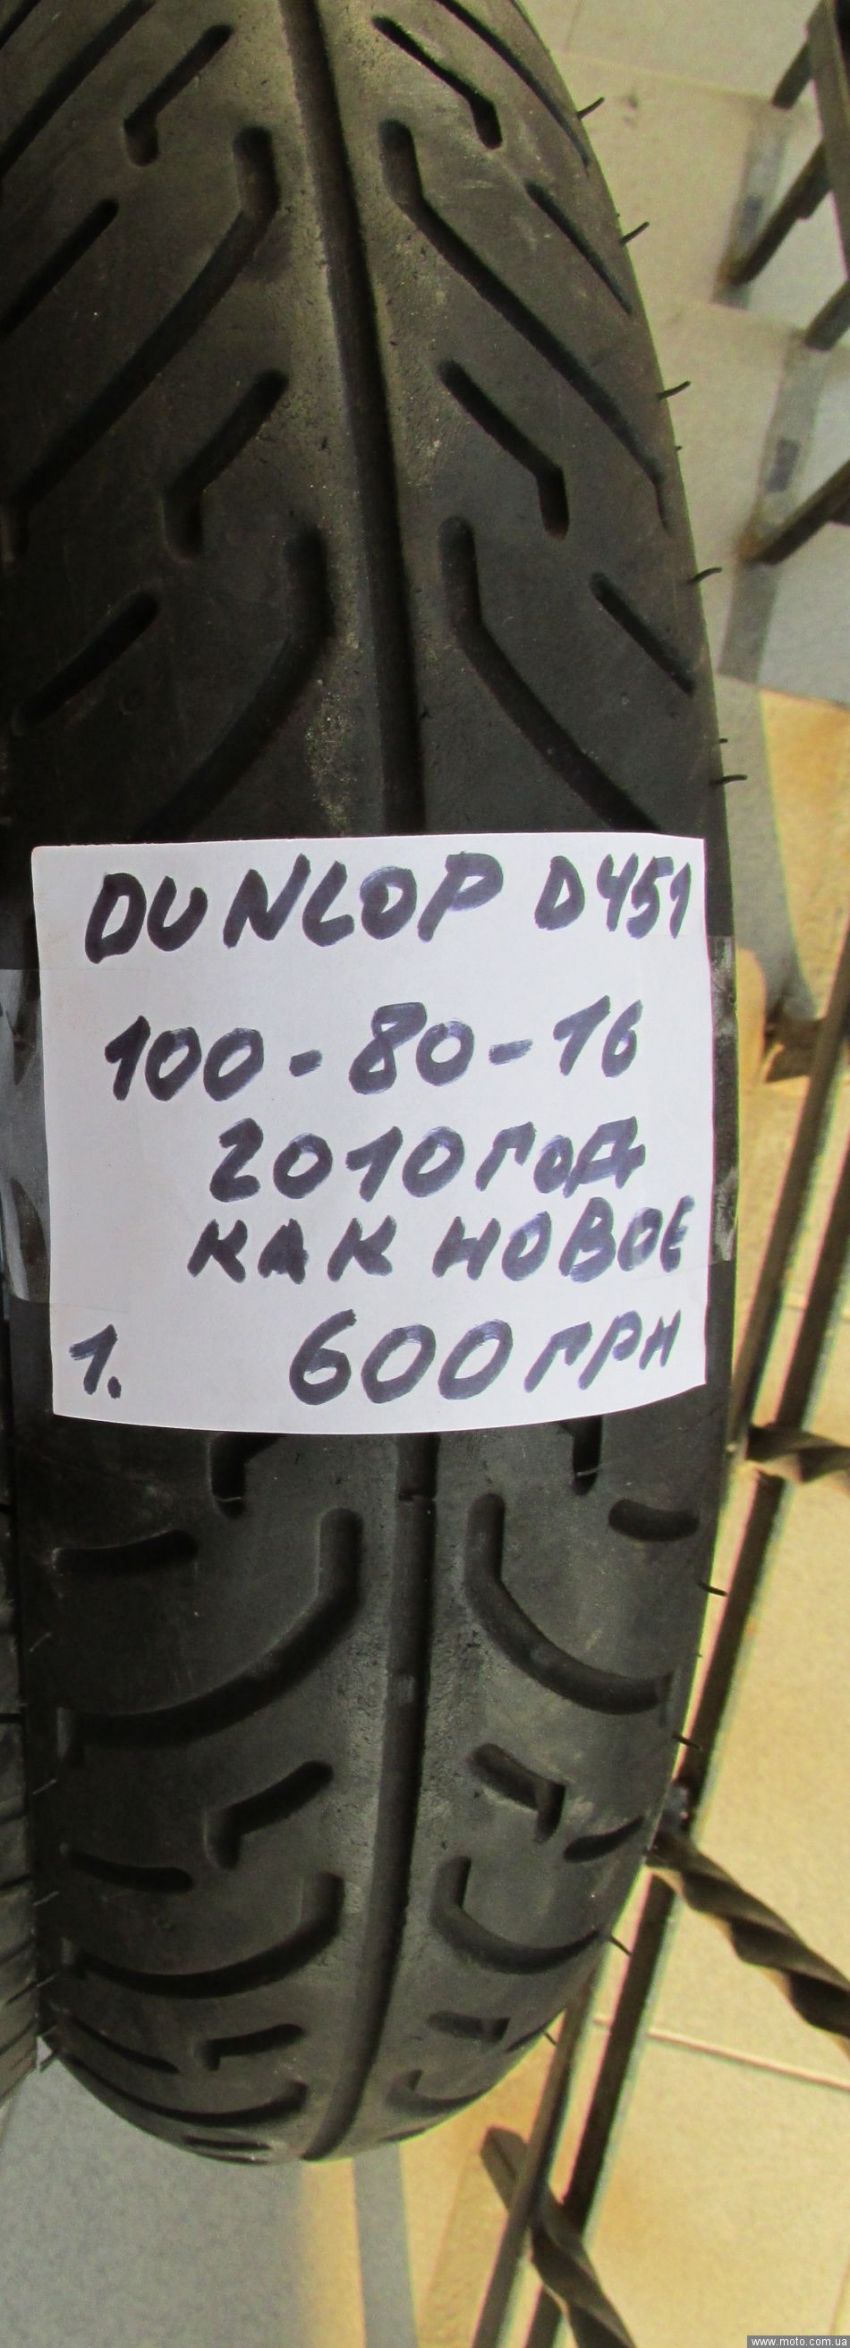 DUNLOP D451
100-80-16
2010 год
КАК НОВОЕ
1. 600 грн
www.moto.com.ua